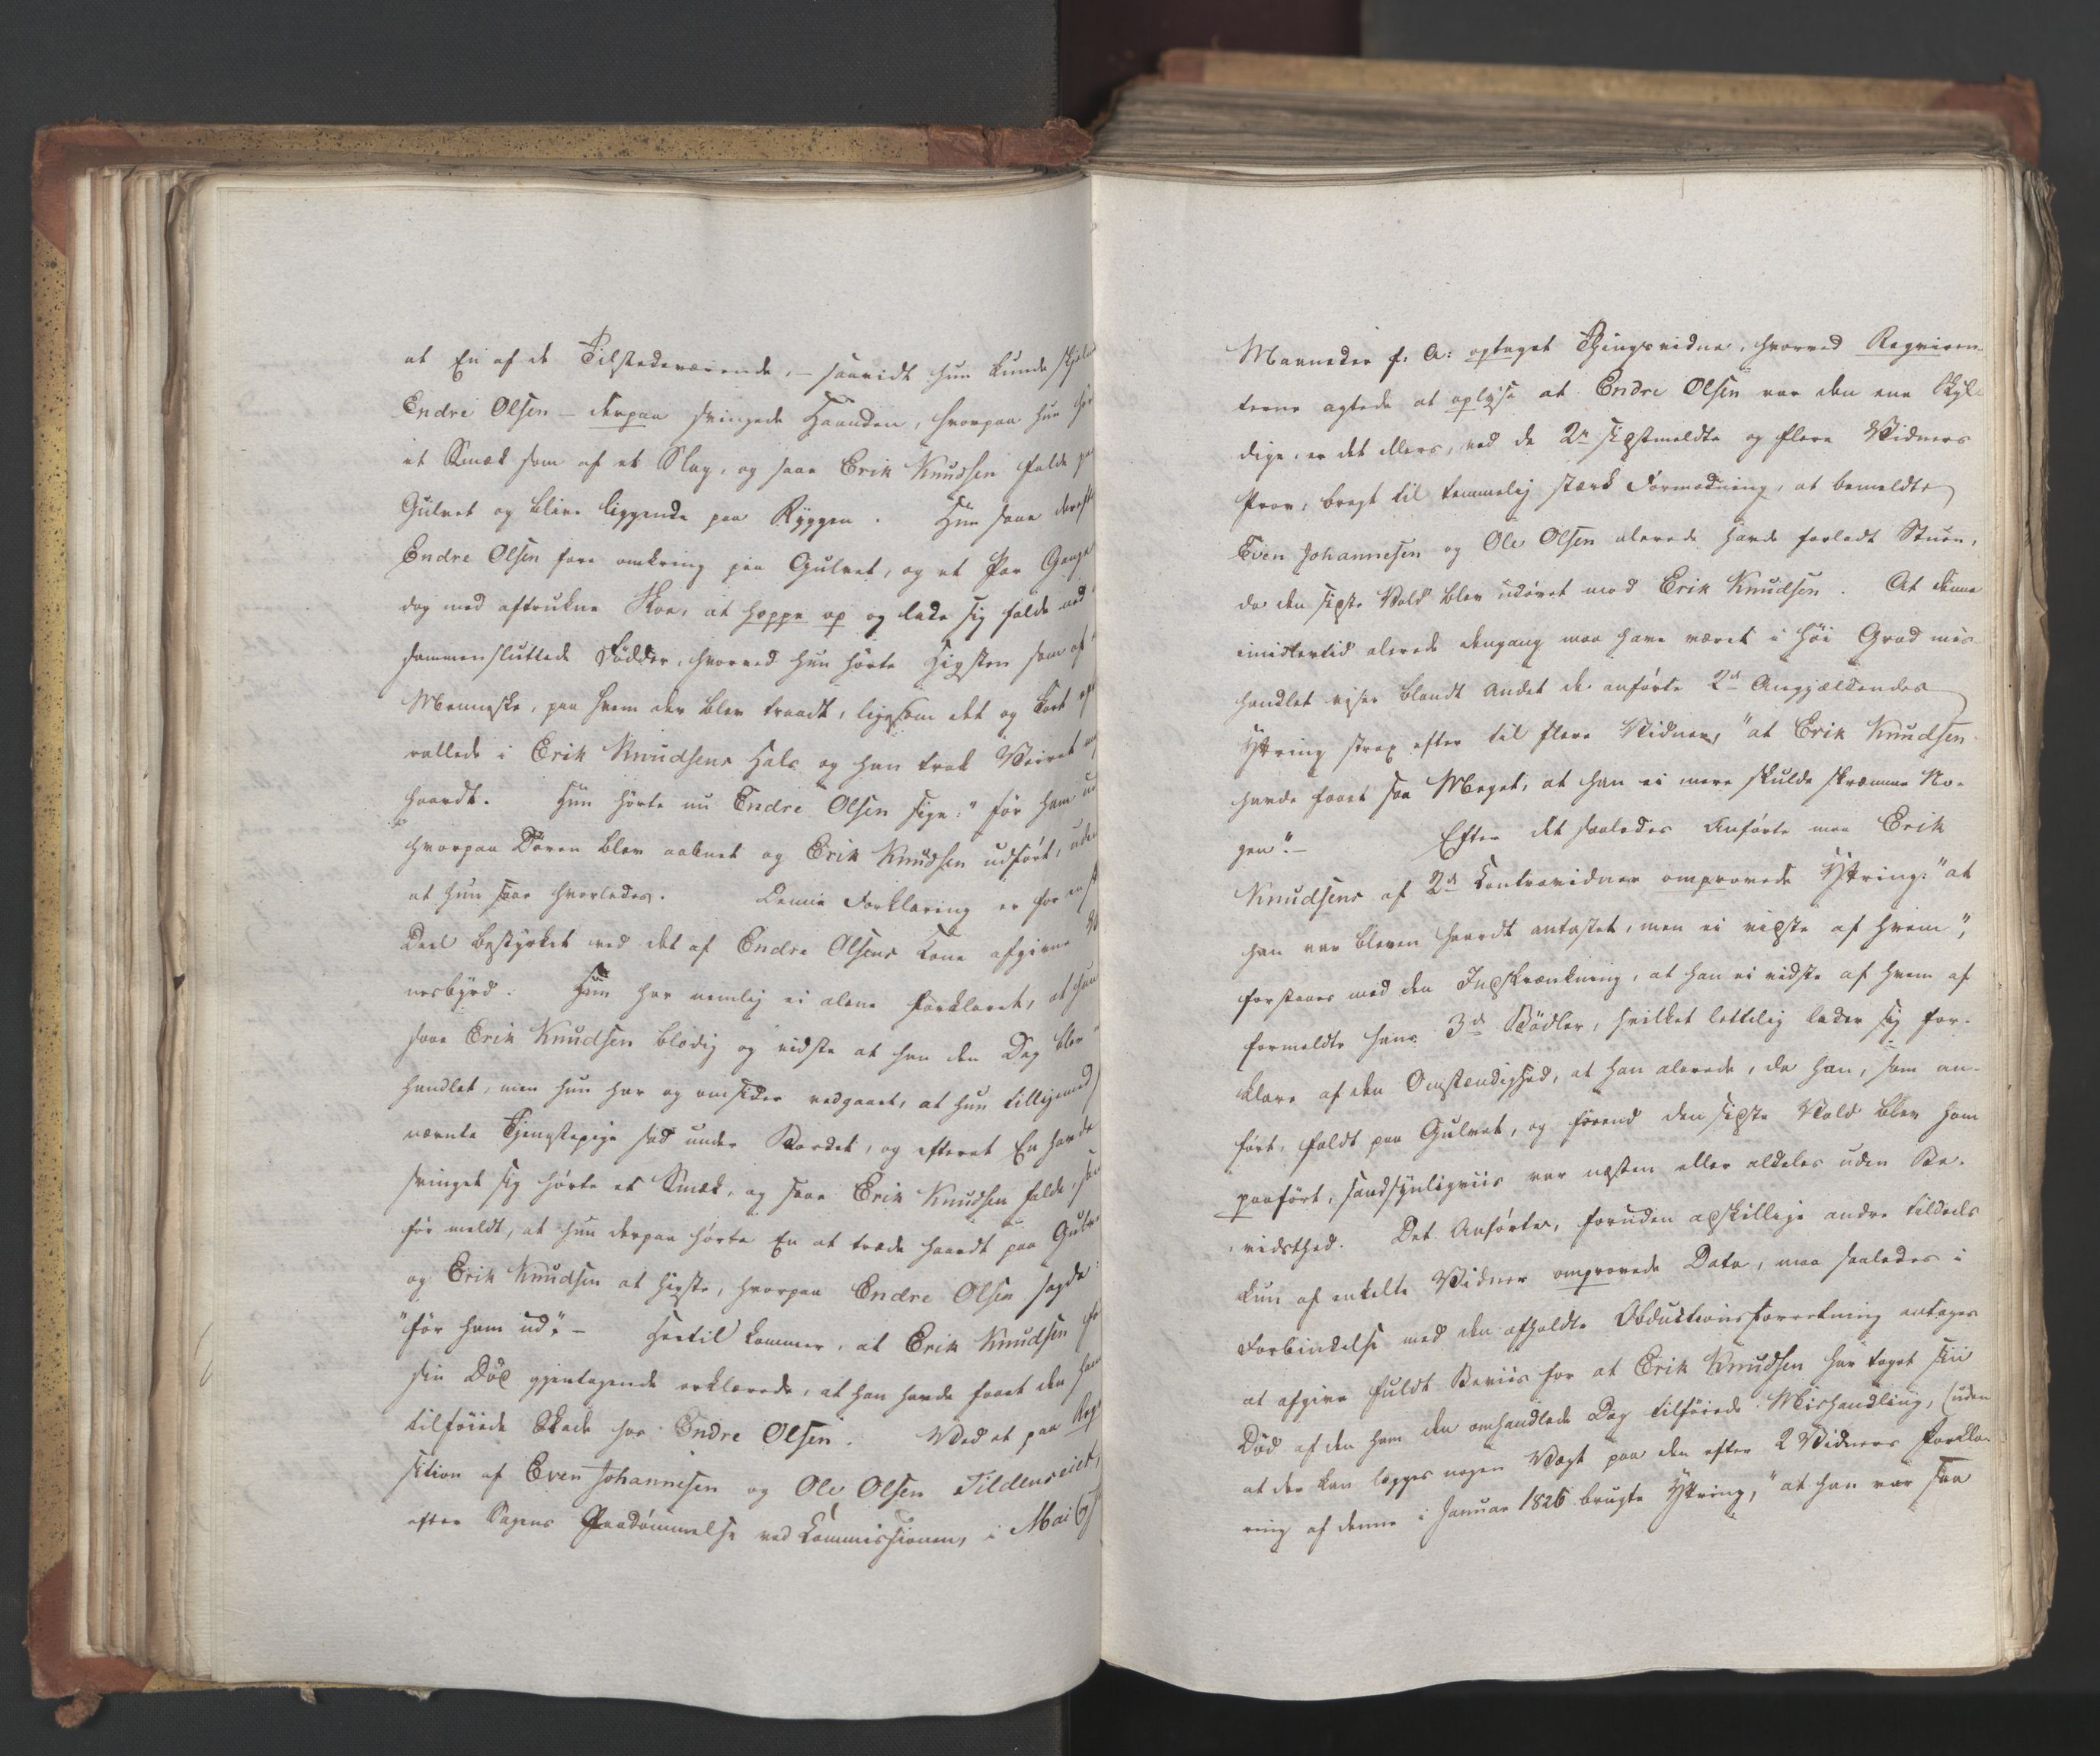 at En af de Tilstedeværende, – saavidt hun kunde
Endre Olsen – derpaa svingede Haanden, hvorpaa hun
et Smæk som af et Slag, og saae Erik Knudsen falde
Gulvet og blive liggende paa Ryggen. Hun saae
Endre Olsen fare omkring paa Gulvet, og et Par Gange
dog med aftrukne Skoe, at hoppe op og lade sig falde ned
sammensluttede Fødder, hvorved hun hørte Higsten som af
Menneske, paa hvem der blev traadt, ligesom det og
rallede i Erik Knudsens Hals og han trak Veiret
haardt. Hun hørte nu Endre Olsen sige: "før ham ud
hvorpaa Døren blev aabnet og Erik Knudsen udført, uden
at hun saae hvorledes. Denne Forklaring er for en
Deel bestyrket ved det af Endre Olsens Kone afgivne
nesbyrd. Hun har nemlig ei alene forklaret, at hun
saae Erik Knudsen blodig og vidste at han den Dag blev
handlet, men hun har og omsider vedgaaet, at hun tilligemed
nævnte Tjenestepige sad under Bordet, og efterat En havde
svinget sig hørte et Smæk, og saae Erik Knudsen falde,
før meldt, at hun derpaa hørte En at træde haardt paa
og Erik Knudsen at higste, hvorpaa Endre Olsen sagde:
"før ham ud". – Hertil kommer, at Erik Knudsen
sin Død gjentagende erklærede, at han havde faaet den ham
tilføiede Skade hos Endre Olsen. Ved et paa
sition af Even Johannesen og Ole Olsen Tildenseiet,
efter Sagens Paadømmelse ved Commissionen, i Mai
Maaneder f: A: optaget Thingsvidne, hvorved Reqviren-
terne agtede at oplyse at Endre Olsen var den ene Skyl-
dige, er det ellers, ved de 2de sidstmeldte og flere Vidners
Prov, bragt til temmelig stærk Formodning, at bemeldte
Even Johannesen og Ole Olsen alerede havde forladt Stuen,
da den sidste Vold blev udøvet mod Erik Knudsen. At denne
imidlertid alerede dengang maa have været i høi Grad mis-
handlet viser blandt andet de anførte 2de Angjældendes
Yttring strax efter til flere Vidner, "at Erik Knudsen
havde faaet saa Meget, at han ei mere skulde skræmme No-
gen". – Efter det saaledes Anførte maa Erik
Knudsens af 2de Contravidner omprovede Yttring: "at
han var bleven haardt antastet, men ei vidste af hvem",
forstaaes med den Indskrænkning, at han ei vidste af hvem af
formeldte hans 3de Bødler, hvilket lettelig lader sig for-
klare af den Omstændighed, at han alerede, da han, som an-
ført, faldt paa Gulvet, og førend den sidste Vold blev ham
paaført, sandsynligviis var næsten eller aldeles uden Be-
vidsthed. Det Anførte, foruden adskillige andre tildeels
kun af enkelte Vidner omprovede Data, maa saaledes i
Forbindelse med den afholdte Obductionsforretning antages
at afgive fuldt Beviis for at Erik Knudsen har taget sin
Død af den ham den omhandlede Dag tilføiede Mishandling, (uden
at der kan lægges nogen Vægt paa den efter 2 Vidners Forkla-
ring af denne i Januar 1826 brugte Yttring, "at han var saa